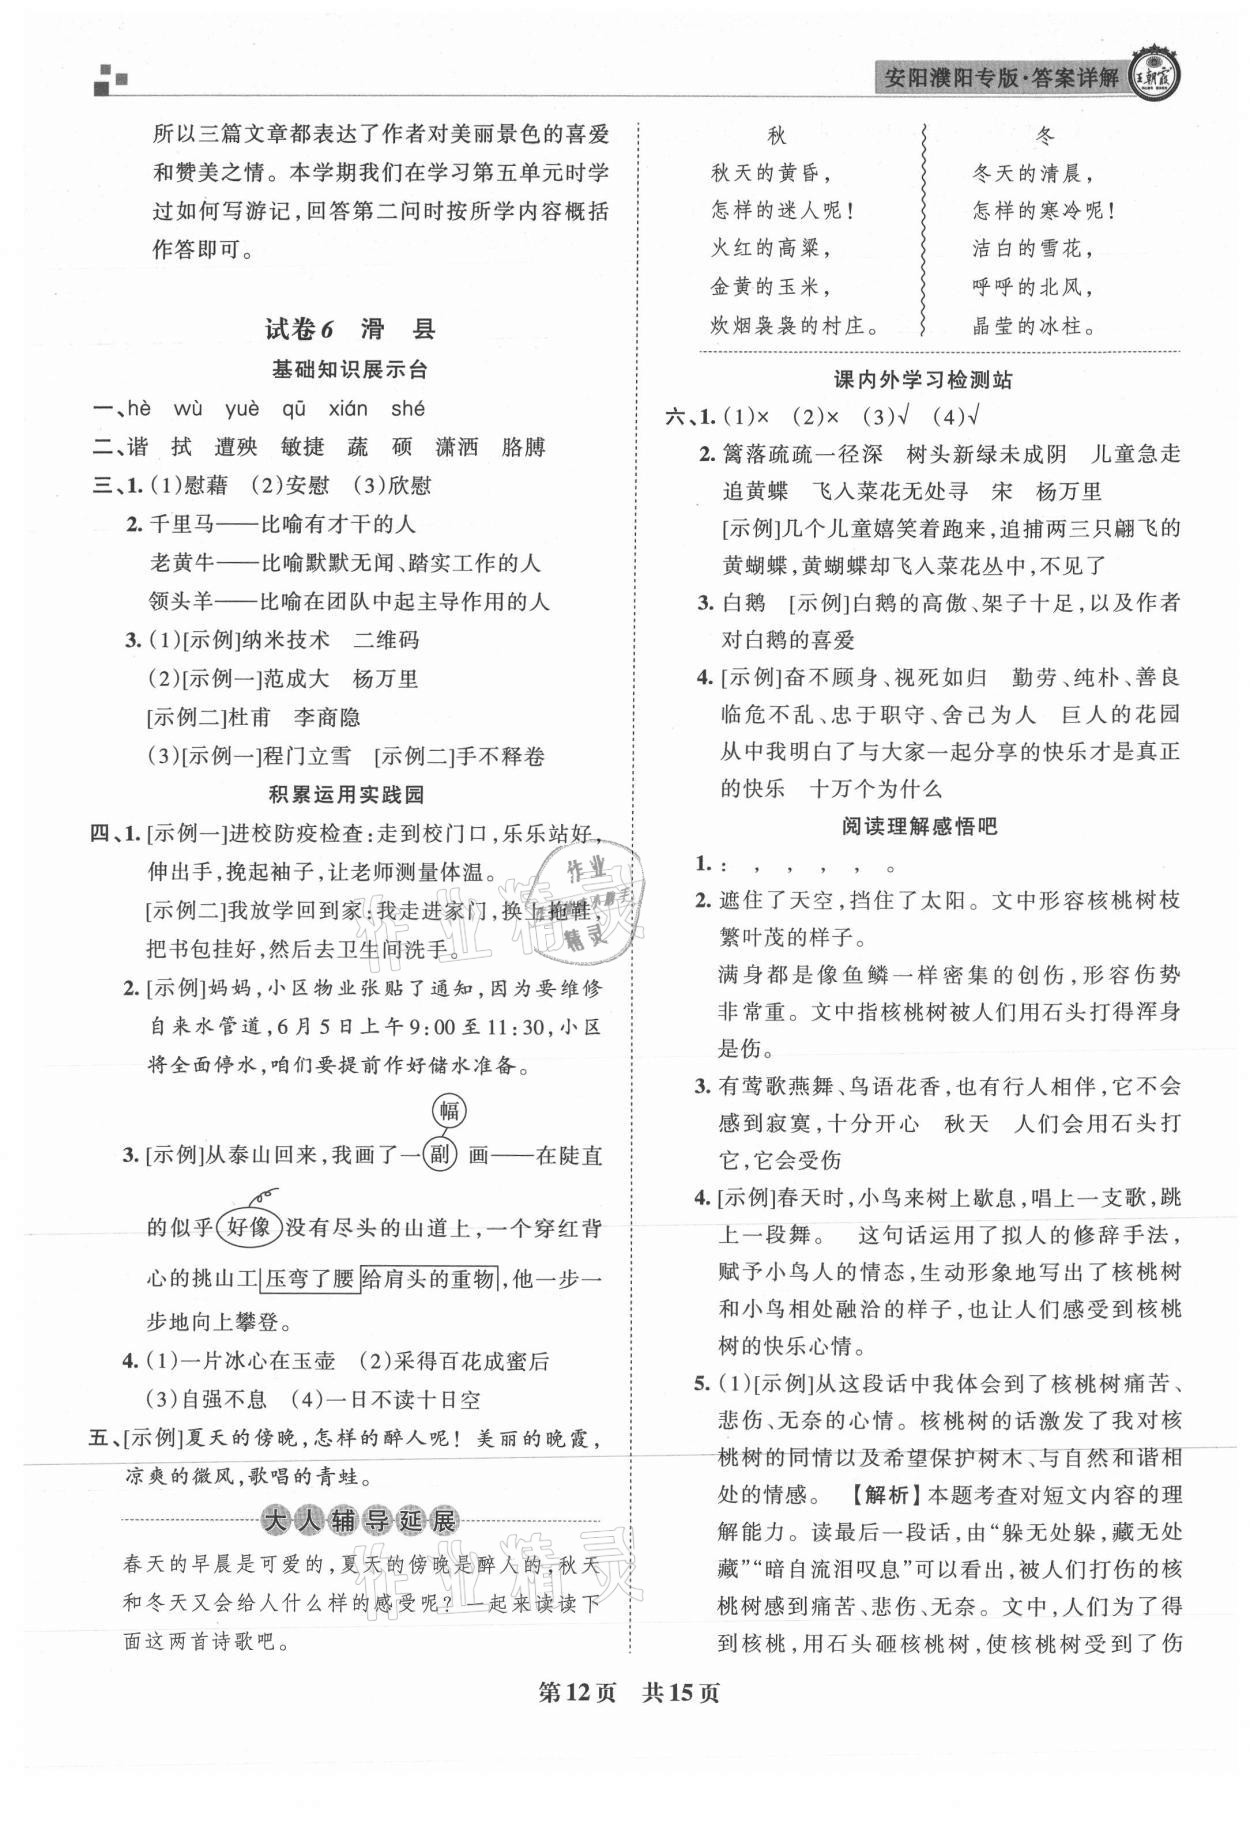 安阳濮阳专版·答案详解
王朝霞
所以三篇文章都表达了作者对美丽景色的喜爱
和赞美之情。本学期我们在学习第五单元时学
过如何写游记,回答第二问时按所学内容概括
作答即可。
试卷6 滑 县
基础知识展示台
一、hè wù yuè qū xián shé
二、谐 拭 遭殃 敏捷 蔬 硕 潇洒 胳膊
三、1. (1)慰藉 (2)安慰 (3)欣慰
2. 千里马——比喻有才干的人
老黄牛——比喻默默无闻、踏实工作的人
领头羊——比喻在团队中起主导作用的人
3. (1)[示例]纳米技术 二维码
(2)[示例一]范成大 杨万里
[示例二]杜甫 李商隐
(3)[示例一]程门立雪 [示例二]手不释卷
积累运用实践园
四、1. [示例一]进校防疫检查:走到校门口,乐乐站好,
伸出手,挽起袖子,让老师测量体温。
[示例二]我放学回到家:我走进家门,换上拖鞋,
把书包挂好,然后去卫生间洗手。
2. [示例]妈妈,小区物业张贴了通知,因为要维修
自来水管道,6月5日上午9:00至11:30,小区
将全面停水,咱们要提前作好储水准备。
幅
3. [示例]从泰山回来,我画了一副 画——在陡直
的似乎好像没有尽头的山道上,一个穿红背
心的挑山工压弯了腰给肩头的重物,他一步一
步地向上攀登。
4. (1)一片冰心在玉壶 (2)采得百花成蜜后
(3)自强不息 (4)一日不读十日空
五、[示例]夏天的傍晚,怎样的醉人呢!美丽的晚霞,
凉爽的微风,歌唱的青蛙。
大人辅导延展
春天的早晨是可爱的,夏天的傍晚是醉人的,秋天
和冬天又会给人什么样的感受呢?一起来读读下
面这两首诗歌吧。
秋
秋天的黄昏,
怎样的迷人呢!
火红的高粱,
金黄的玉米,
炊烟袅袅的村庄。
冬
冬天的清晨,
怎样的寒冷呢!
洁白的雪花,
呼呼的北风,
晶莹的冰柱。
课内外学习检测站
六、1. (1)× (2)× (3)√ (4)√
2. 篱落疏疏一径深 树头新绿未成阴 儿童急走
追黄蝶 飞入菜花无处寻 宋 杨万里
[示例]几个儿童嬉笑着跑来,追捕两三只翩飞的
黄蝴蝶,黄蝴蝶却飞入菜花丛中,不见了
3. 白鹅 [示例]白鹅的高傲、架子十足,以及作者
对白鹅的喜爱
4. [示例]奋不顾身、视死如归 勤劳、纯朴、善良
临危不乱、忠于职守、舍己为人 巨人的花园
从中我明白了与大家一起分享的快乐才是真正
的快乐 十万个为什么
阅读理解感悟吧
1. : , , , , 。
2. 遮住了天空,挡住了太阳。文中形容核桃树枝
繁叶茂的样子。
满身都是像鱼鳞一样密集的创伤,形容伤势
非常重。文中指核桃树被人们用石头打得浑身
是伤。
3. 有莺歌燕舞、鸟语花香,也有行人相伴,它不会
感到寂寞,十分开心 秋天 人们会用石头打
它,它会受伤
4. [示例]春天时,小鸟来树上歇息,唱上一支歌,跳
上一段舞。 这句话运用了拟人的修辞手法,
赋予小鸟人的情态,生动形象地写出了核桃树
和小鸟相处融洽的样子,也让人们感受到核桃
树的快乐心情。
5. (1)[示例]从这段话中我体会到了核桃树痛苦、
悲伤、无奈的心情。核桃树的话激发了我对核
桃树的同情以及希望保护树木、与自然和谐相
处的情感。 【解析】本题考查对短文内容的理
解能力。读最后一段话,由“躲无处躲,藏无处
藏”“暗自流泪叹息”可以看出,被人们打伤的核
桃树感到痛苦、悲伤、无奈。文中,人们为了得
到核桃,用石头砸核桃树,使核桃树受到了伤
第12页 共15页
作业精灵
作业
精灵
作业精灵